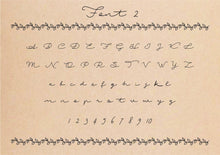 Font 2
A B C D E F G H I J K L M
N O P Q R S T U V W X Y Z
a b c d e f g h i j k l m
n o p q r s t u v w x y z
1 2 3 4 5 6 7 8 9 10